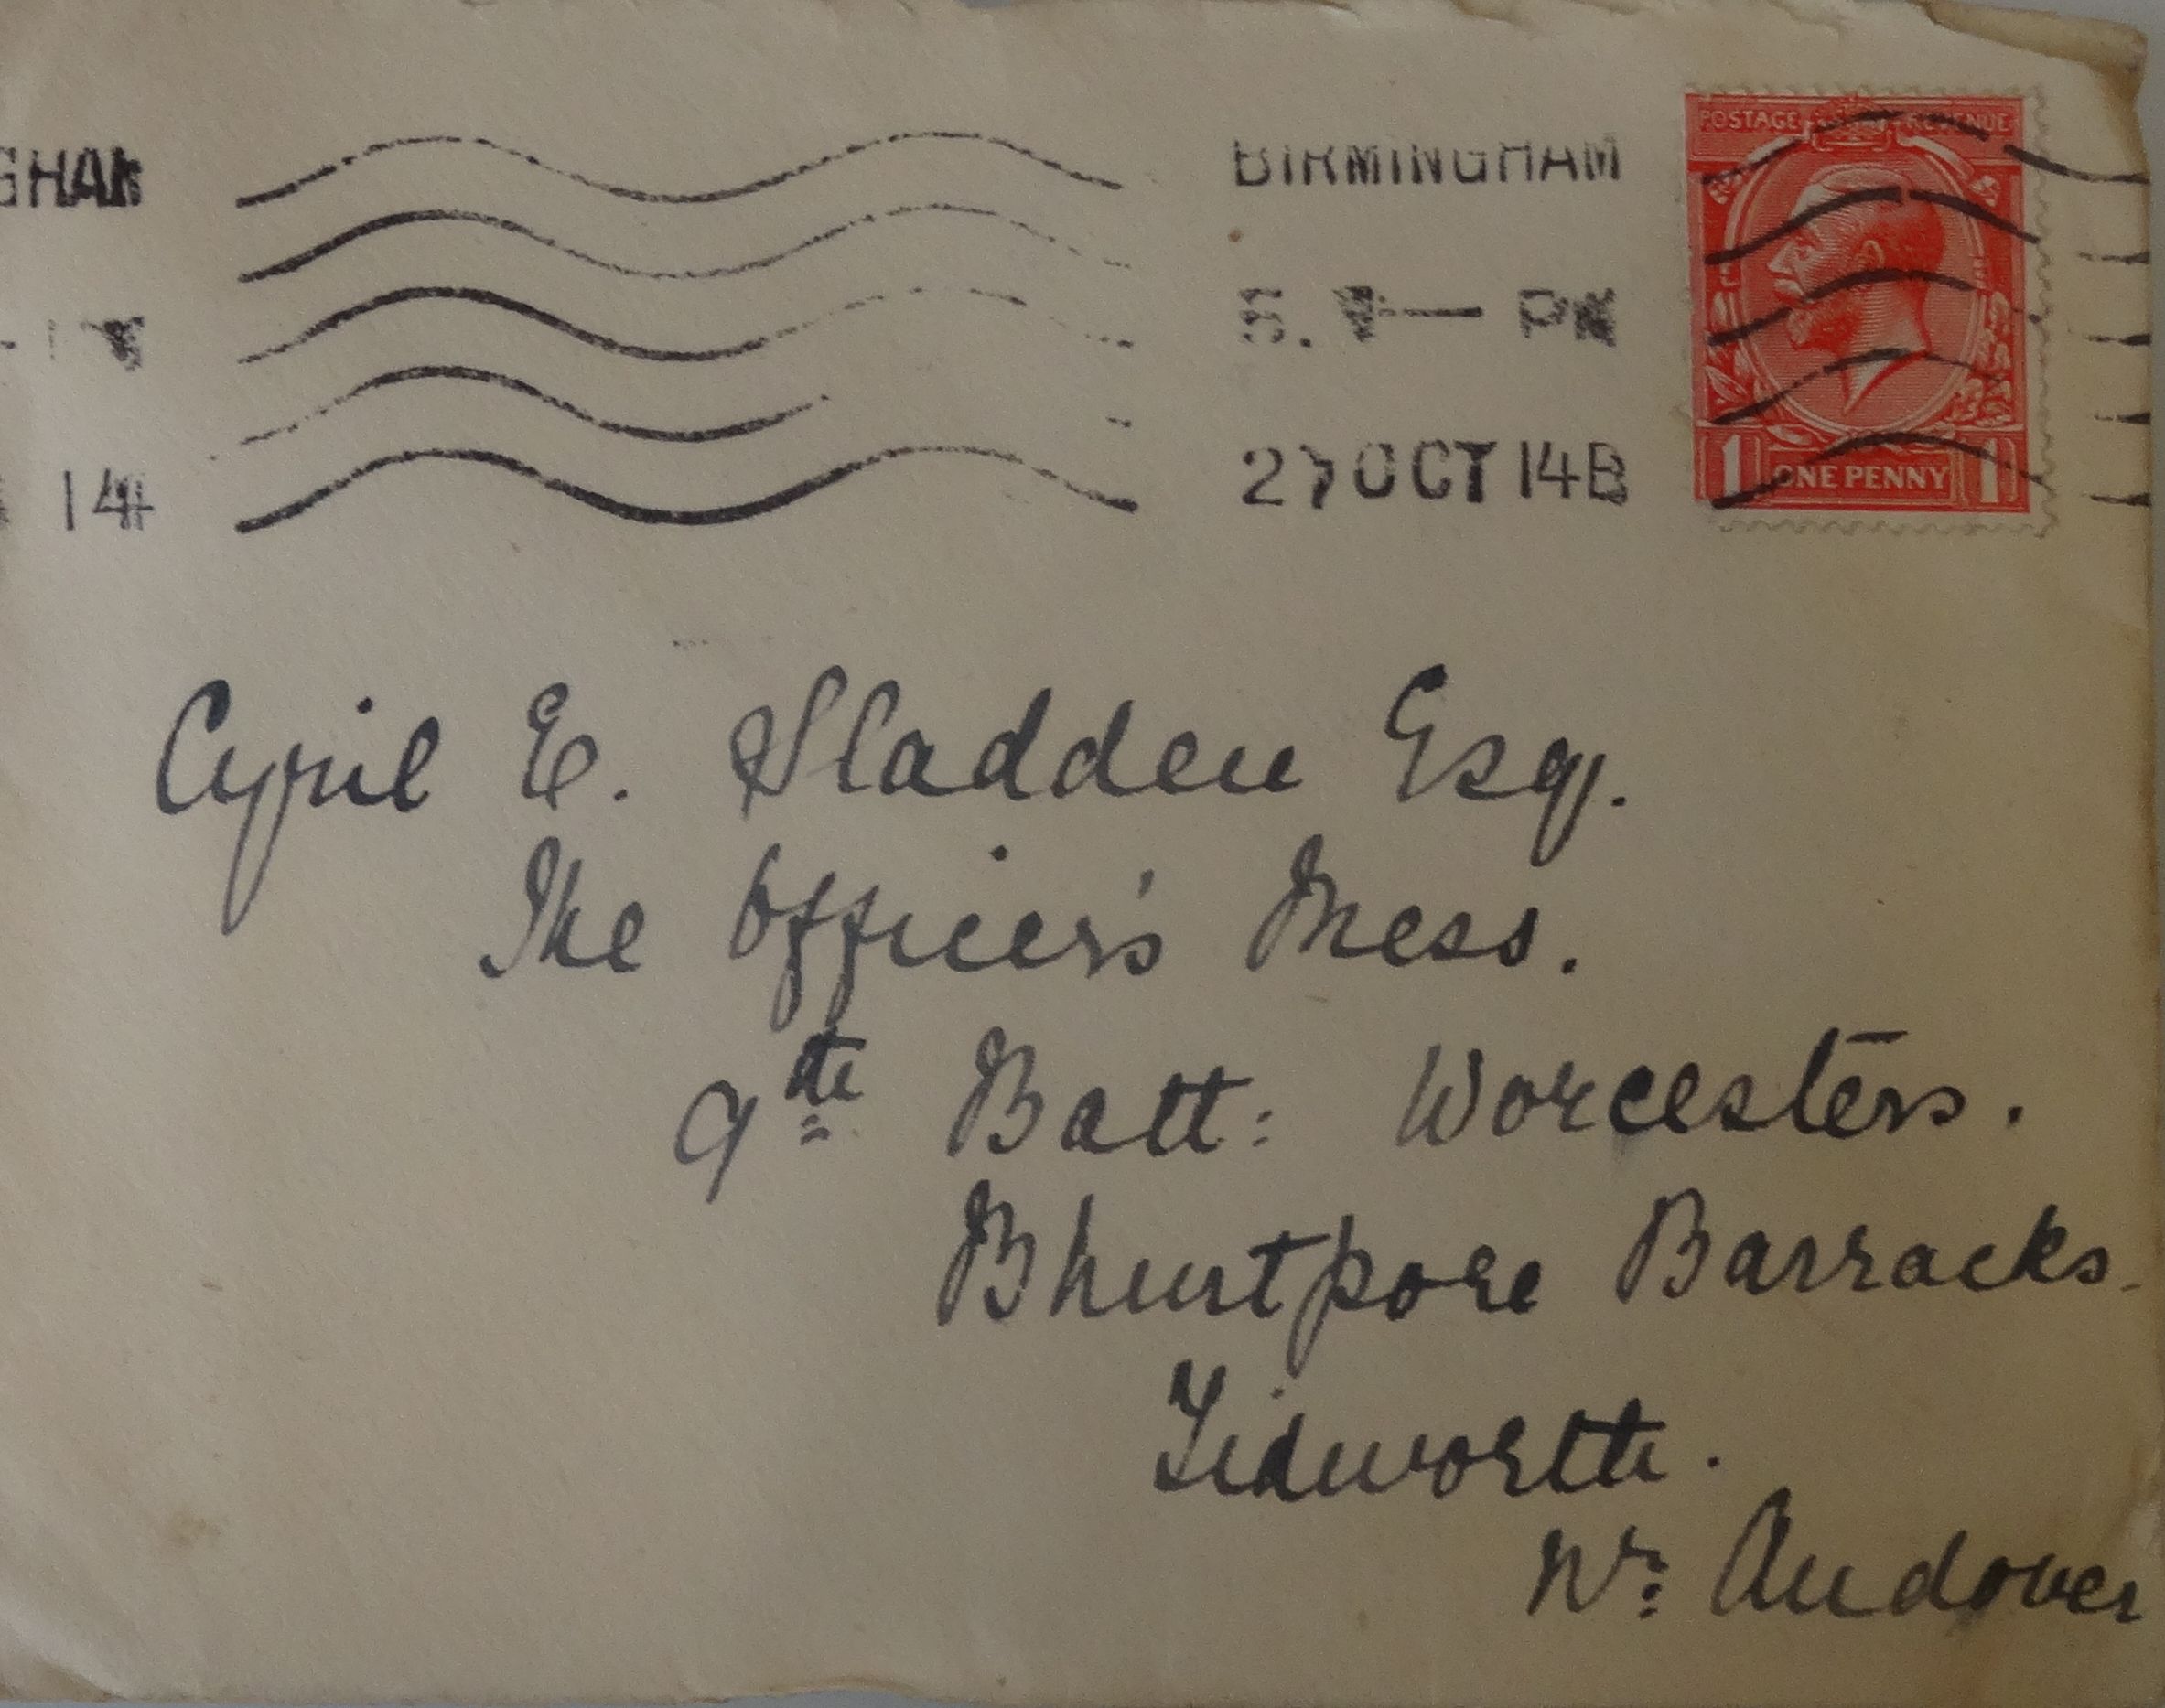 GHAM
BIRMINGHAM
POSTAGE REVENUE
PM
14
27 OCT 14 B
1 ONE PENNY 1
Cyril E. Sladden Esq.
The Officer's Mess.
9th Batt: Worcesters.
Bhurtpore Barracks.
Tidworth.
Nr: Andover